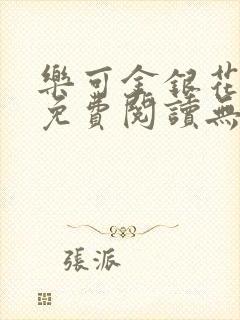 樂可金銀花
免費閱讀無
張派